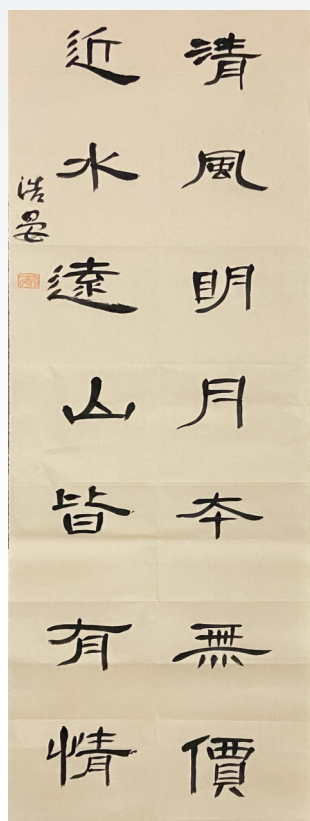 清風明月本無價
近水遠山皆有情
浩晏